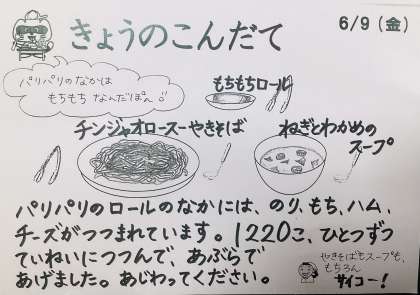 きょうのこんだて
6/9(金)
パリパリのなかは
もちもち なんだぽん♪
もちもちロール
チンジャオロースーやきそば
ねぎとわかめの
スープ
パリパリのロールのなかには、のり、もち、ハム、
チーズがつつまれています。1220こ、ひとつずつ
ていねいにつつんで、あぶらで
あげました。あじわってください。
やきそばもスープも、
もちろん
サイコー!